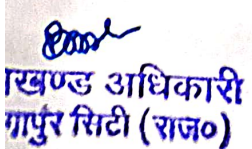 ाखण्ड अधिकारी
गापुर सिटी (राज०)